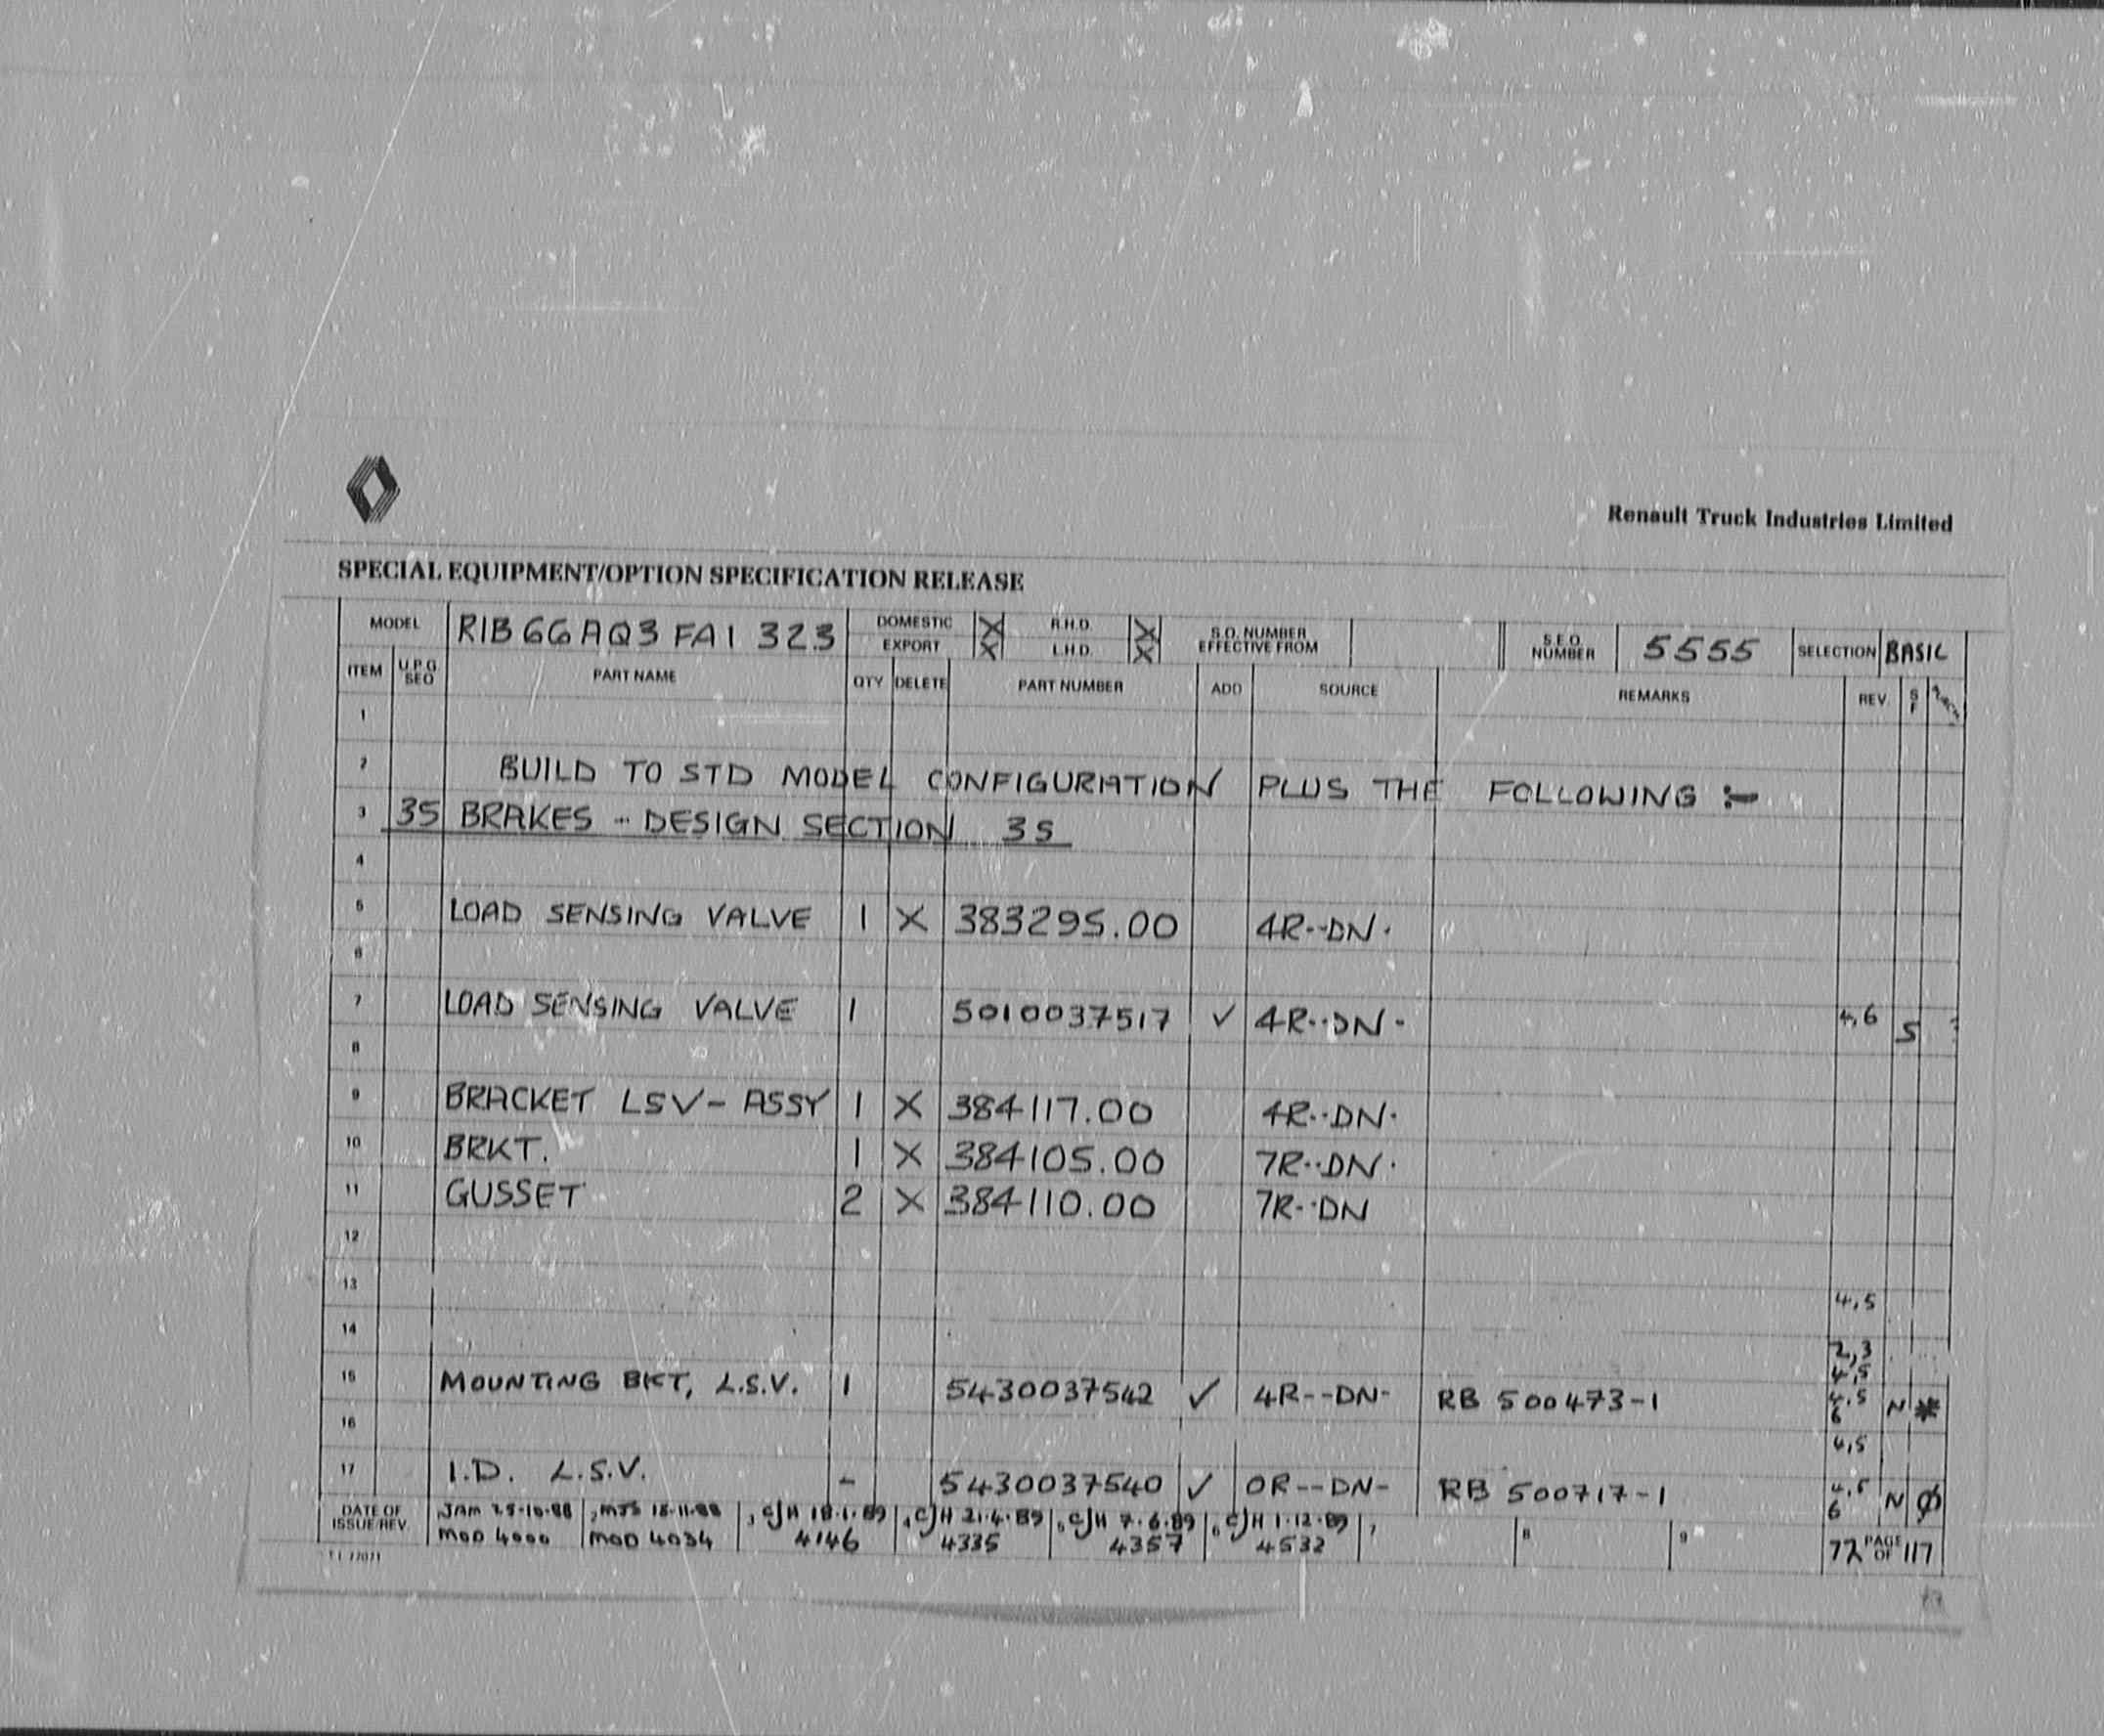 Renault Truck Industries Limited
SPECIAL EQUIPMENT/OPTION SPECIFICATION RELEASE
MODEL RIB66AQ3 FA1 323 DOMESTIC X R.H.D. X S.O. NUMBER S.E.O. 5555 SELECTION BASIC
EXPORT X L.H.D. X EFFECTIVE FROM NUMBER
ITEM U.P.G SEQ PART NAME QTY DELETE PART NUMBER ADD SOURCE REMARKS REV S F
1
2 BUILD TO STD MODEL CONFIGURATION PLUS THE FOLLOWING :-
3 35 BRAKES - DESIGN SECTION 35
4
5 LOAD SENSING VALVE 1 X 383295.00 4R--DN-
6
7 LOAD SENSING VALVE 1 5010037517 ✓ 4R--DN- 4,6 S
8
9 BRACKET LSV- ASSY 1 X 384117.00 4R--DN-
10 BRKT. 1 X 384105.00 7R--DN-
11 GUSSET 2 X 384110.00 7R--DN
12
13 4,5
14 2,3
4,5
15 MOUNTING BKT, L.S.V. 1 5430037542 ✓ 4R--DN- RB 500473-1 4,5 6 N *
16 4,5
17 I.D. L.S.V. - 5430037540 ✓ 0R--DN- RB 500717-1 4,5 6 N Ø
DATE OF ISSUE/REV. 1 JAM 25-10-88 2 MJS 15-11-88 3 CJH 18.1.89 4 CJH 21.4.89 5 CJH 7.6.89 6 CJH 1.12.89 7 8 9
MOD 4000 MOD 4034 4146 4335 4357 4532 72 PAGE OF 117